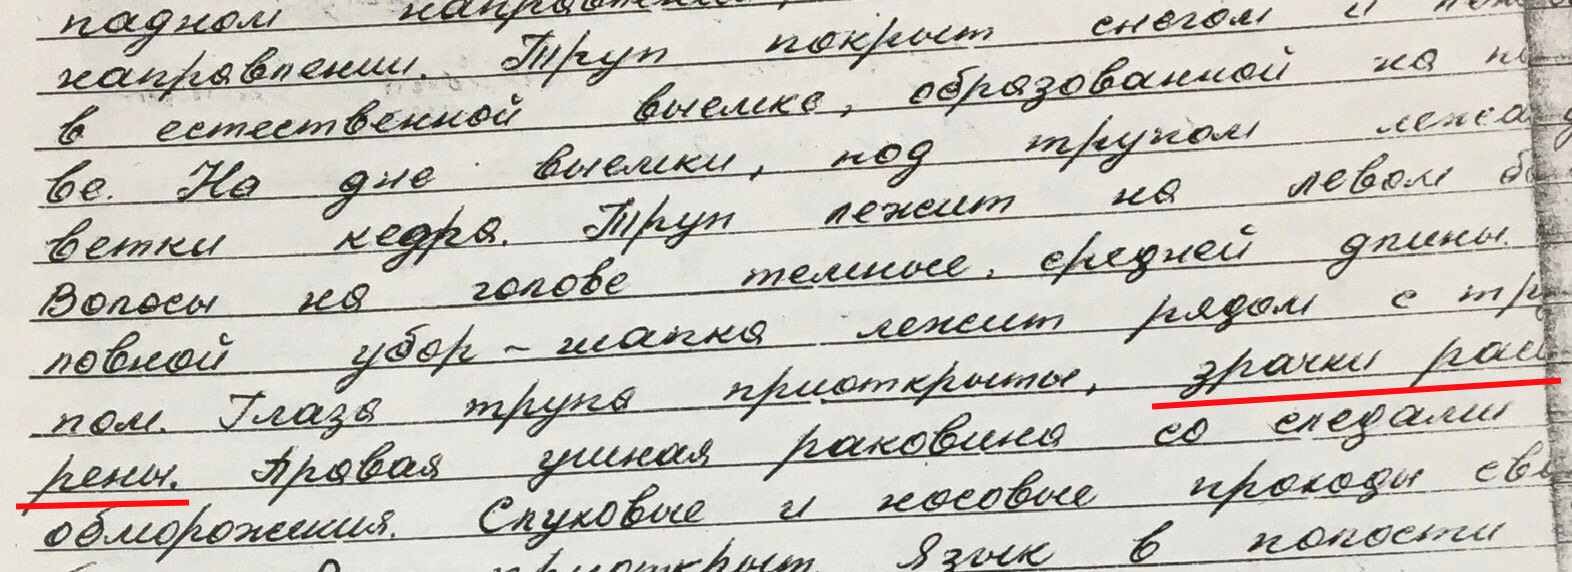 падном направлении,
направлении. Труп покрыт снегом и
в естественной выемке, образованной на
ве. На дне выемки, под трупом лежа
ветки кедра. Труп лежит на левом б
Волосы на голове темные, средней длины.
ловной убор - шапка лежит рядом с тру
пом. Глаза трупа приоткрыты, зрачки рас
рены. Правая ушная раковина со следами
обморожения. Слуховые и носовые проходы сво
приоткрыт. Язык в полости